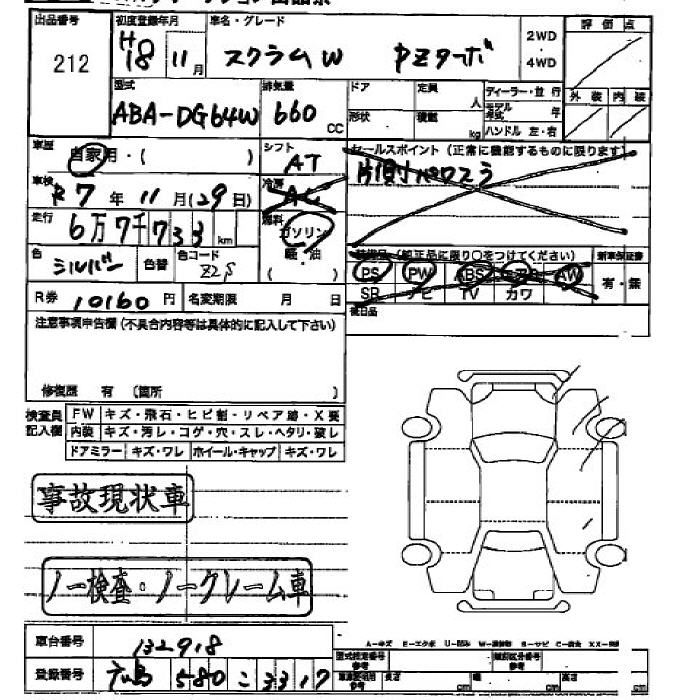 出品番号 初度登録年月 車名・グレード 評価点
212 H18 11月 スクラムW PZターボ 2WD・4WD
型式 排気量 ドア 定員 人 ディーラー・並行 外装 内装
ABA-DG64W 660 CC 形状 積載 kg モデル年式 年 ハンドル 左・右
車歴 自家用・( ) シフト AT セールスポイント(正常に機能するものに限ります)
車検 R7年 11月(29日) 冷房 AC 片側パワスラ
走行 6万7千733km 燃料 ガソリン 軽・油
色 シルバー 色替 色コード Z2S (純正品に限り○をつけてください) 新車保証書
PS PW ABS AW 有・無
SR ナビ TV カワ
R券 10160円 名変期限 月 日 後日品
注意事項申告欄(不具合内容等は具体的に記入して下さい)
修復歴 有 (箇所 )
検査員記入欄 FW キズ・飛石・ヒビ割・リペア跡・X要
内装 キズ・汚レ・コゲ・穴・スレ・ヘタリ・破レ
ドアミラー キズ・ワレ ホイール・キャップ キズ・ワレ
事故現状車
ノー検査・ノークレーム車
A-キズ E-エクボ U-凹み
車台番号 132918 型式指定番号 参考 類別区分番号 参考
登録番号 広島 580 こ 3317 車庫証明用 参考 長さ cm 幅 cm 高さ cm